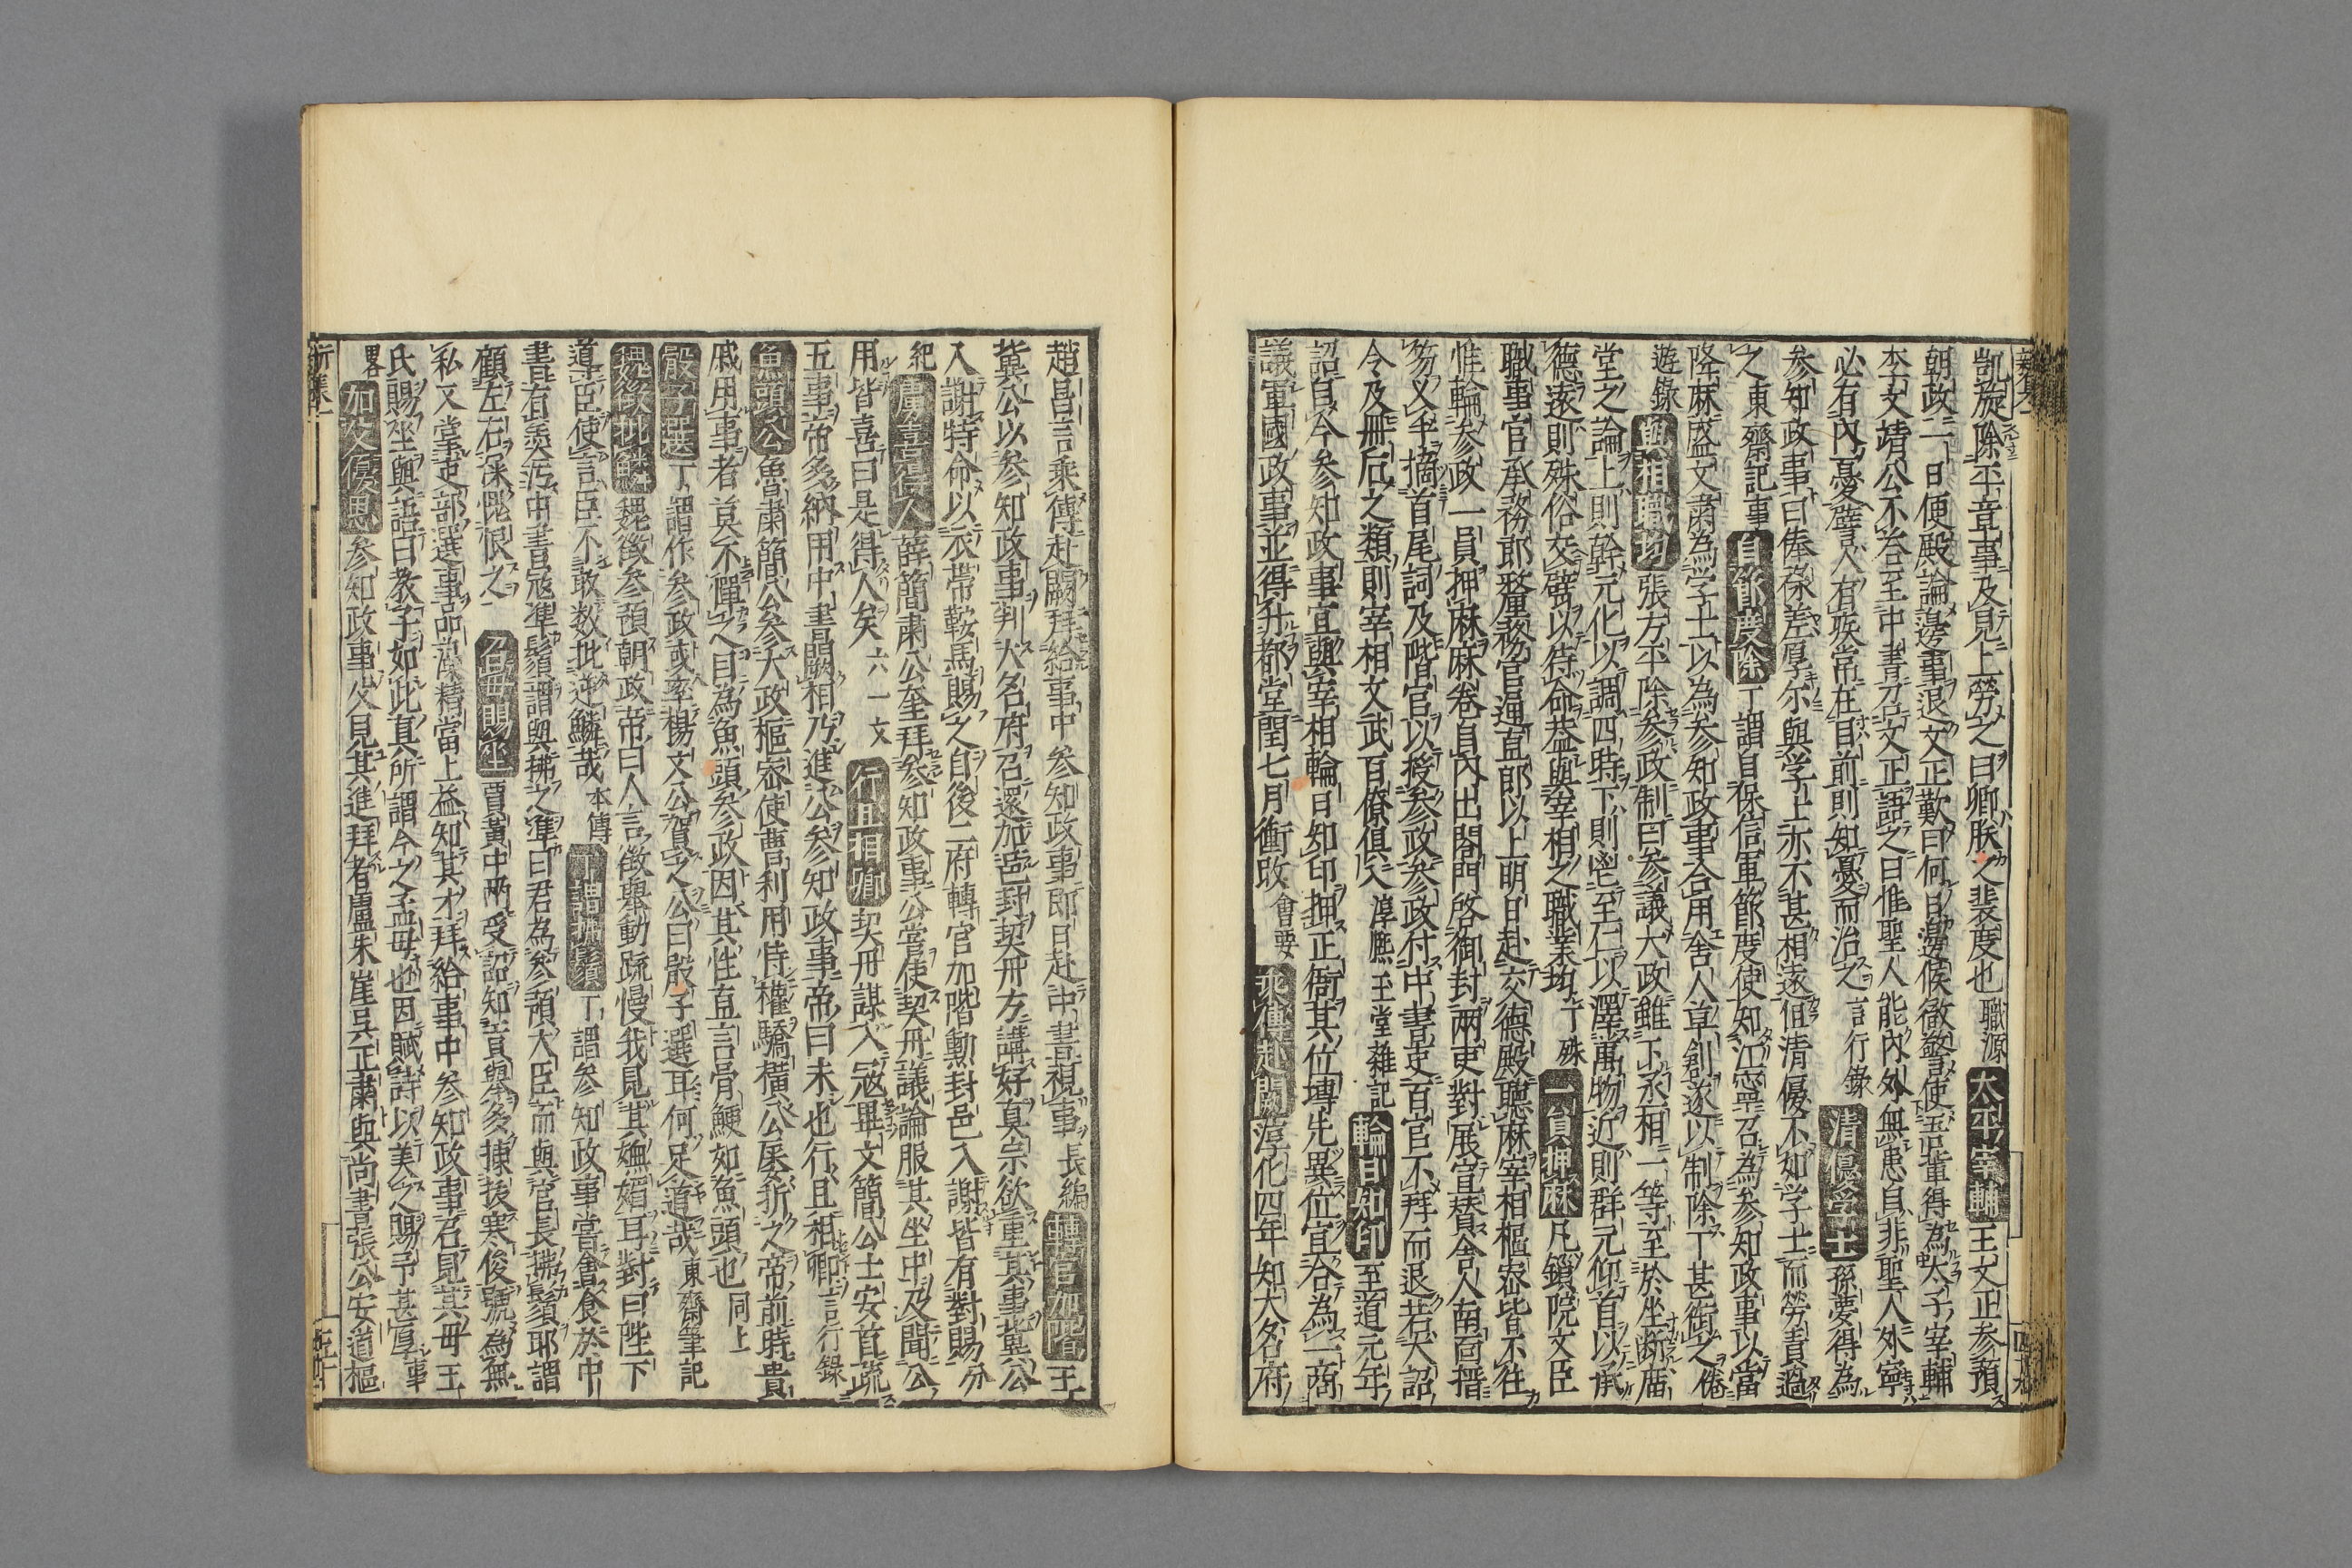 凱旋除平章事及見上勞之曰卿朕之裴度也 職源 太平宰輔 王文正参預
朝政一日便殿論邊事退文正歎曰何日邊候徹警使吾輩得為太子宰輔
李文靖公不答至中書方言文正語之曰惟聖人能內外無患自非聖人外寧
必有內憂譬人有疾常在目前則知憂而治之 言行錄 清優學士 孫夢得為
参知政事曰俸祿差厚尓與学士亦不甚相遠但清優不如学士而勞責過
之 東齋記事 自節度除 丁謂自保信軍節度使知江寧召為参知政事以當
降麻盛文肅為学士以為参知政事合用舍人草創遂以制除丁甚銜之 倦
遊錄 與相職均 張方平除参政制曰参議大政雖下丞相一等至於坐斷庿
堂之論上則幹元化以調四時下則鬯至仁以澤萬物近則群元仰首以承
德遠則殊俗交臂以待命蓋與宰相之職業均 丁 殊 一員押麻 凡鎖院文臣
職事官承務郎釐務官通直郎以上明日赴文德殿聽麻宰相樞密皆不往
惟輪参政一員押麻麻卷自內出閤門啓御封兩吏對展宣賛舍人南面搢
笏叉手摘首尾詞及階官以授参政参政付中書吏百官不拜而退若大詔
令及冊后之類則宰相文武百僚俱入 淳熈玉堂雜記 輪日知印 至道元年
詔自今参知政事宜與宰相輪日知印押正衙其位塼先異位宜合為一商
議軍國政事並得升都堂閏七月衝改 會要 乘傳赴闕 淳化四年知大名府
趙昌言乘傳赴闕拜給事中参知政事即日赴中書視事 長編 轉官加階 王
冀公以参知政事判大名府召還加邑封契丹方講好真宗欲重其事冀公
入謝特命以衣帶鞍馬賜之自後二府轉官加階勳封邑入謝皆有對賜 分
紀 虜喜得人 薛簡肅公奎拜参知政事公嘗使契丹議論服其坐中及聞公
用皆喜曰是得人矣 六一文 行且相卿 契丹謀入冦畢文簡公士安首疏
五事帝多納用中書闕相乃進公参知政事帝曰未也行且相卿 言行錄
魚頭公 魯肅簡公参大政樞密使曹利用恃權驕橫公屡折之帝前時貴
戚用事者莫不憚之目為魚頭参政因其性直言骨鯁如魚頭也 同上
骰子選 丁謂作参政或率楊文公賀之公曰骰子選耳何足道哉 東齋筆記
魏徵批鱗 魏徵参預朝政帝曰人言徵舉動踈慢我見其嫵媚耳對曰陛下
導臣使言臣不敢数批逆鱗哉 本傳 丁謂拂鬚 丁謂参知政事嘗會食於中
書有羹汚中書冦準鬚謂與拂之準曰君為参預大臣而與官長拂鬚耶謂
顧左右深愧恨之 召母賜坐 賈黃中兩受詔知貢舉多揀拔寒俊號為無
私又掌吏部選事品藻精當上益知其才拜給事中参知政事召見其母王
氏賜坐與語曰教子如此真所謂今之孟母也因賦詩以美之賜予甚厚 事
畧 加殳優恩 参知政事公見其進拜者盧朱崖吕正肅與尚書張公安道樞